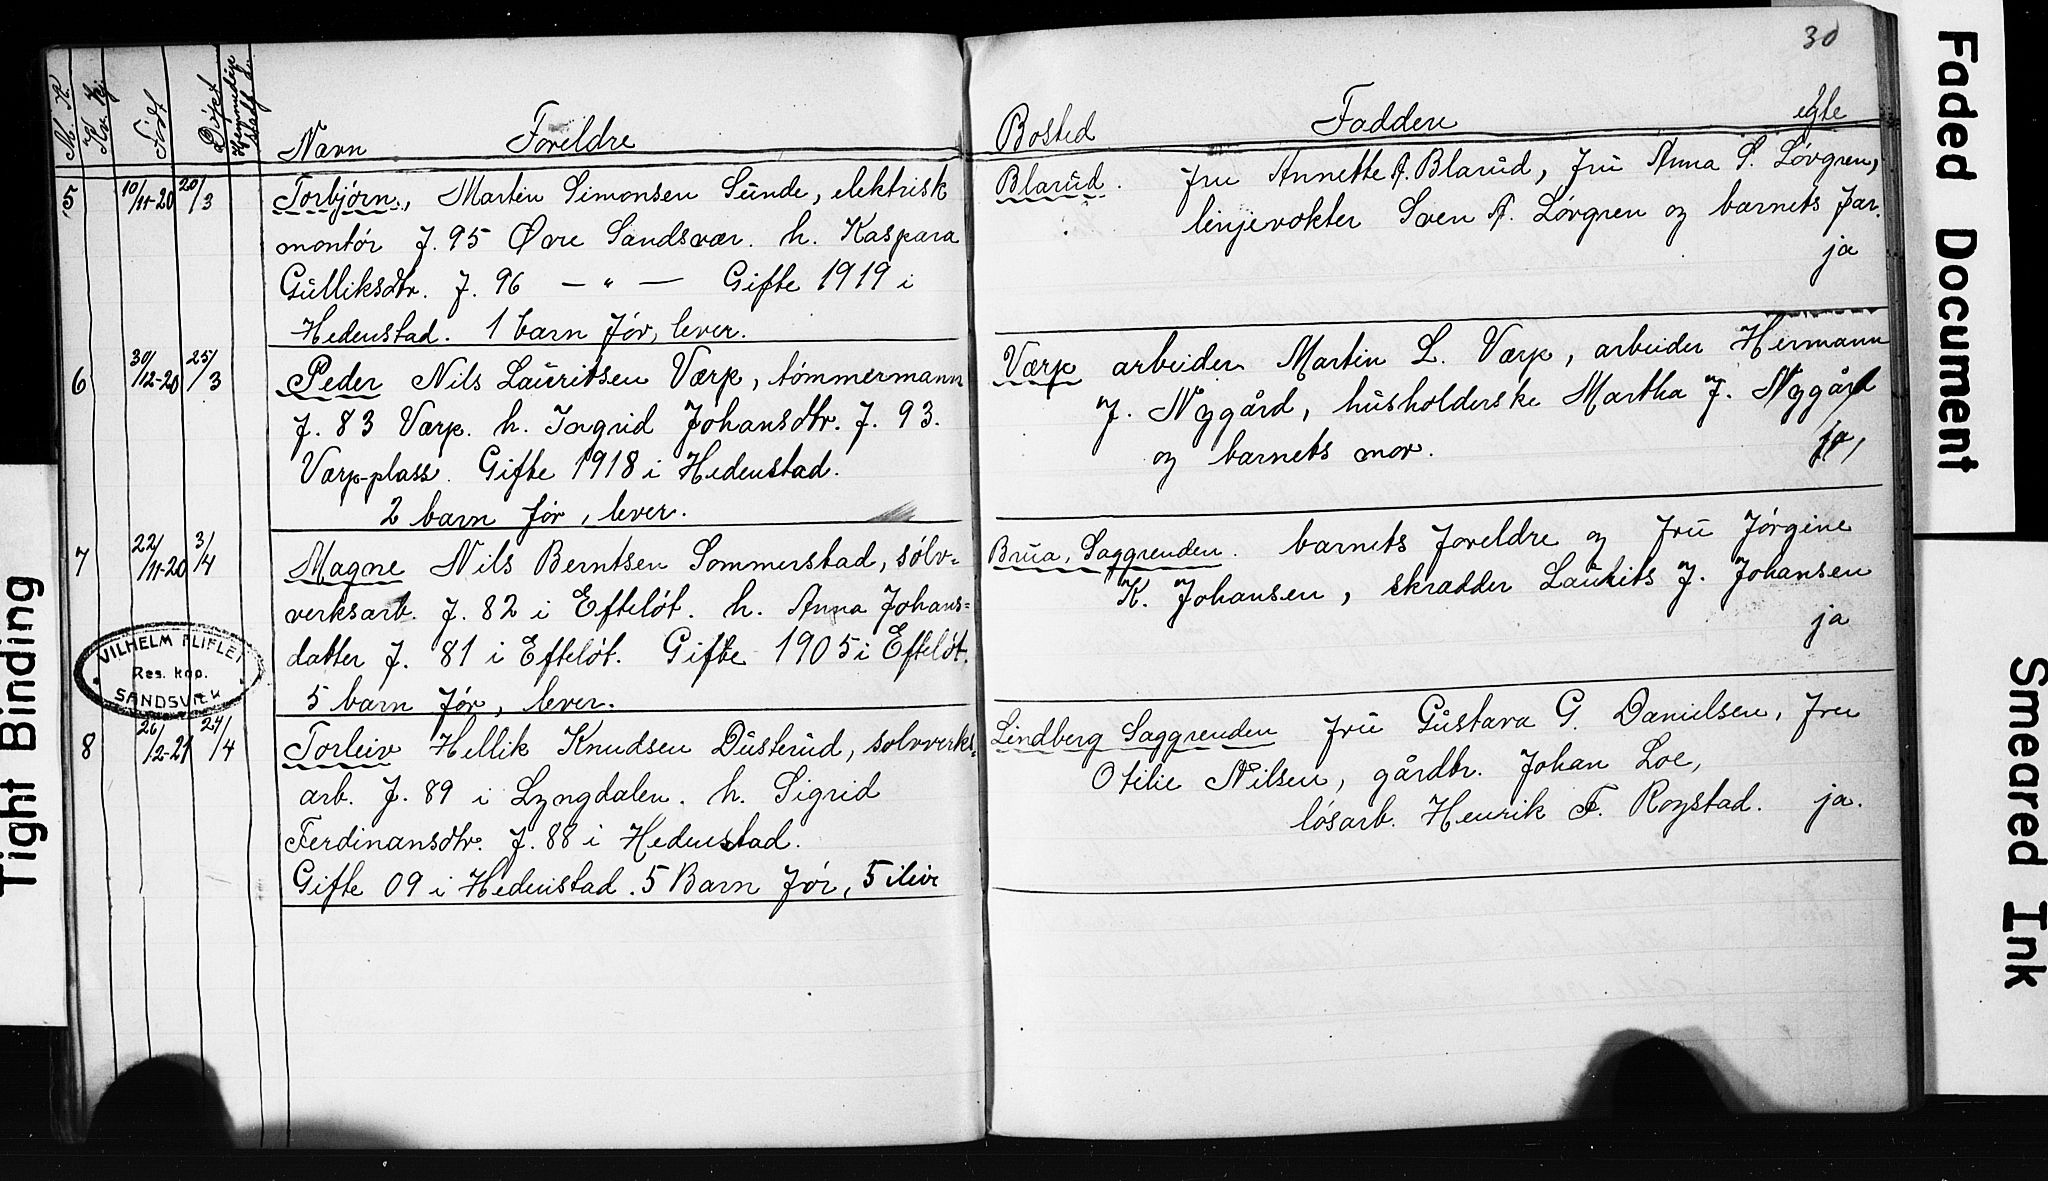 30
M. K.
Kv. Kj.
Født
Døpt
Hjemmedøpt
Navn Foreldre
5 10/11-20 20/3 Torbjørn, Martin Simonsen Sunde, elektrisk
montør f. 95 Øvre Sandsvær. h. Kaspara
Gulliksdtr. f. 96 — " — Gifte 1919 i
Hedenstad. 1 barn før, lever.
6 30/12-20 25/3 Peder Nils Lauritsen Værp, tømmermann
f. 83 Værp. h. Ingrid Johansdtr. f. 93.
Værp-plass. Gifte 1918 i Hedenstad.
2 barn før, lever.
7 22/11-20 3/4 Magne Nils Berntsen Sommerstad, sølv-
verksarb. f. 82 i Efteløt. h. Anna Johans-
datter f. 81 i Efteløt. Gifte 1905 i Efteløt.
5 barn før, lever.
VILHELM FLIFLET
Res. kap.
SANDSVÆR
8 26/2-21 24/4 Torleiv Hellik Knudsen Dusterud, sølvverks-
arb. f. 89 i Lyngdalen. h. Sigrid
Ferdinansdtr. f. 88 i Hedenstad.
Gifte 09 i Hedenstad. 5 Barn før, 5 ilive
Bosted Faddere egte
Blarud. fru Annette A. Blarud, fru Anna S. Løvgren,
linjevokter Sven A. Løvgren og barnets far.
ja
Værp arbeider Martin L. Værp, arbeider Hermann
J. Nygård, husholderske Martha J. Nygård
og barnets mor. ja,
Brua, Saggrenden. barnets foreldre og fru Jørgine
K. Johansen, skrædder Laurits J. Johansen
ja
Lindberg Saggrenden fru Gustava G. Danielsen, fru
Otilie Nilsen, gårdbr. Johan Loe,
løsarb. Henrik F. Roystad. ja.
Tight Binding
Faded Document
Smeared Ink